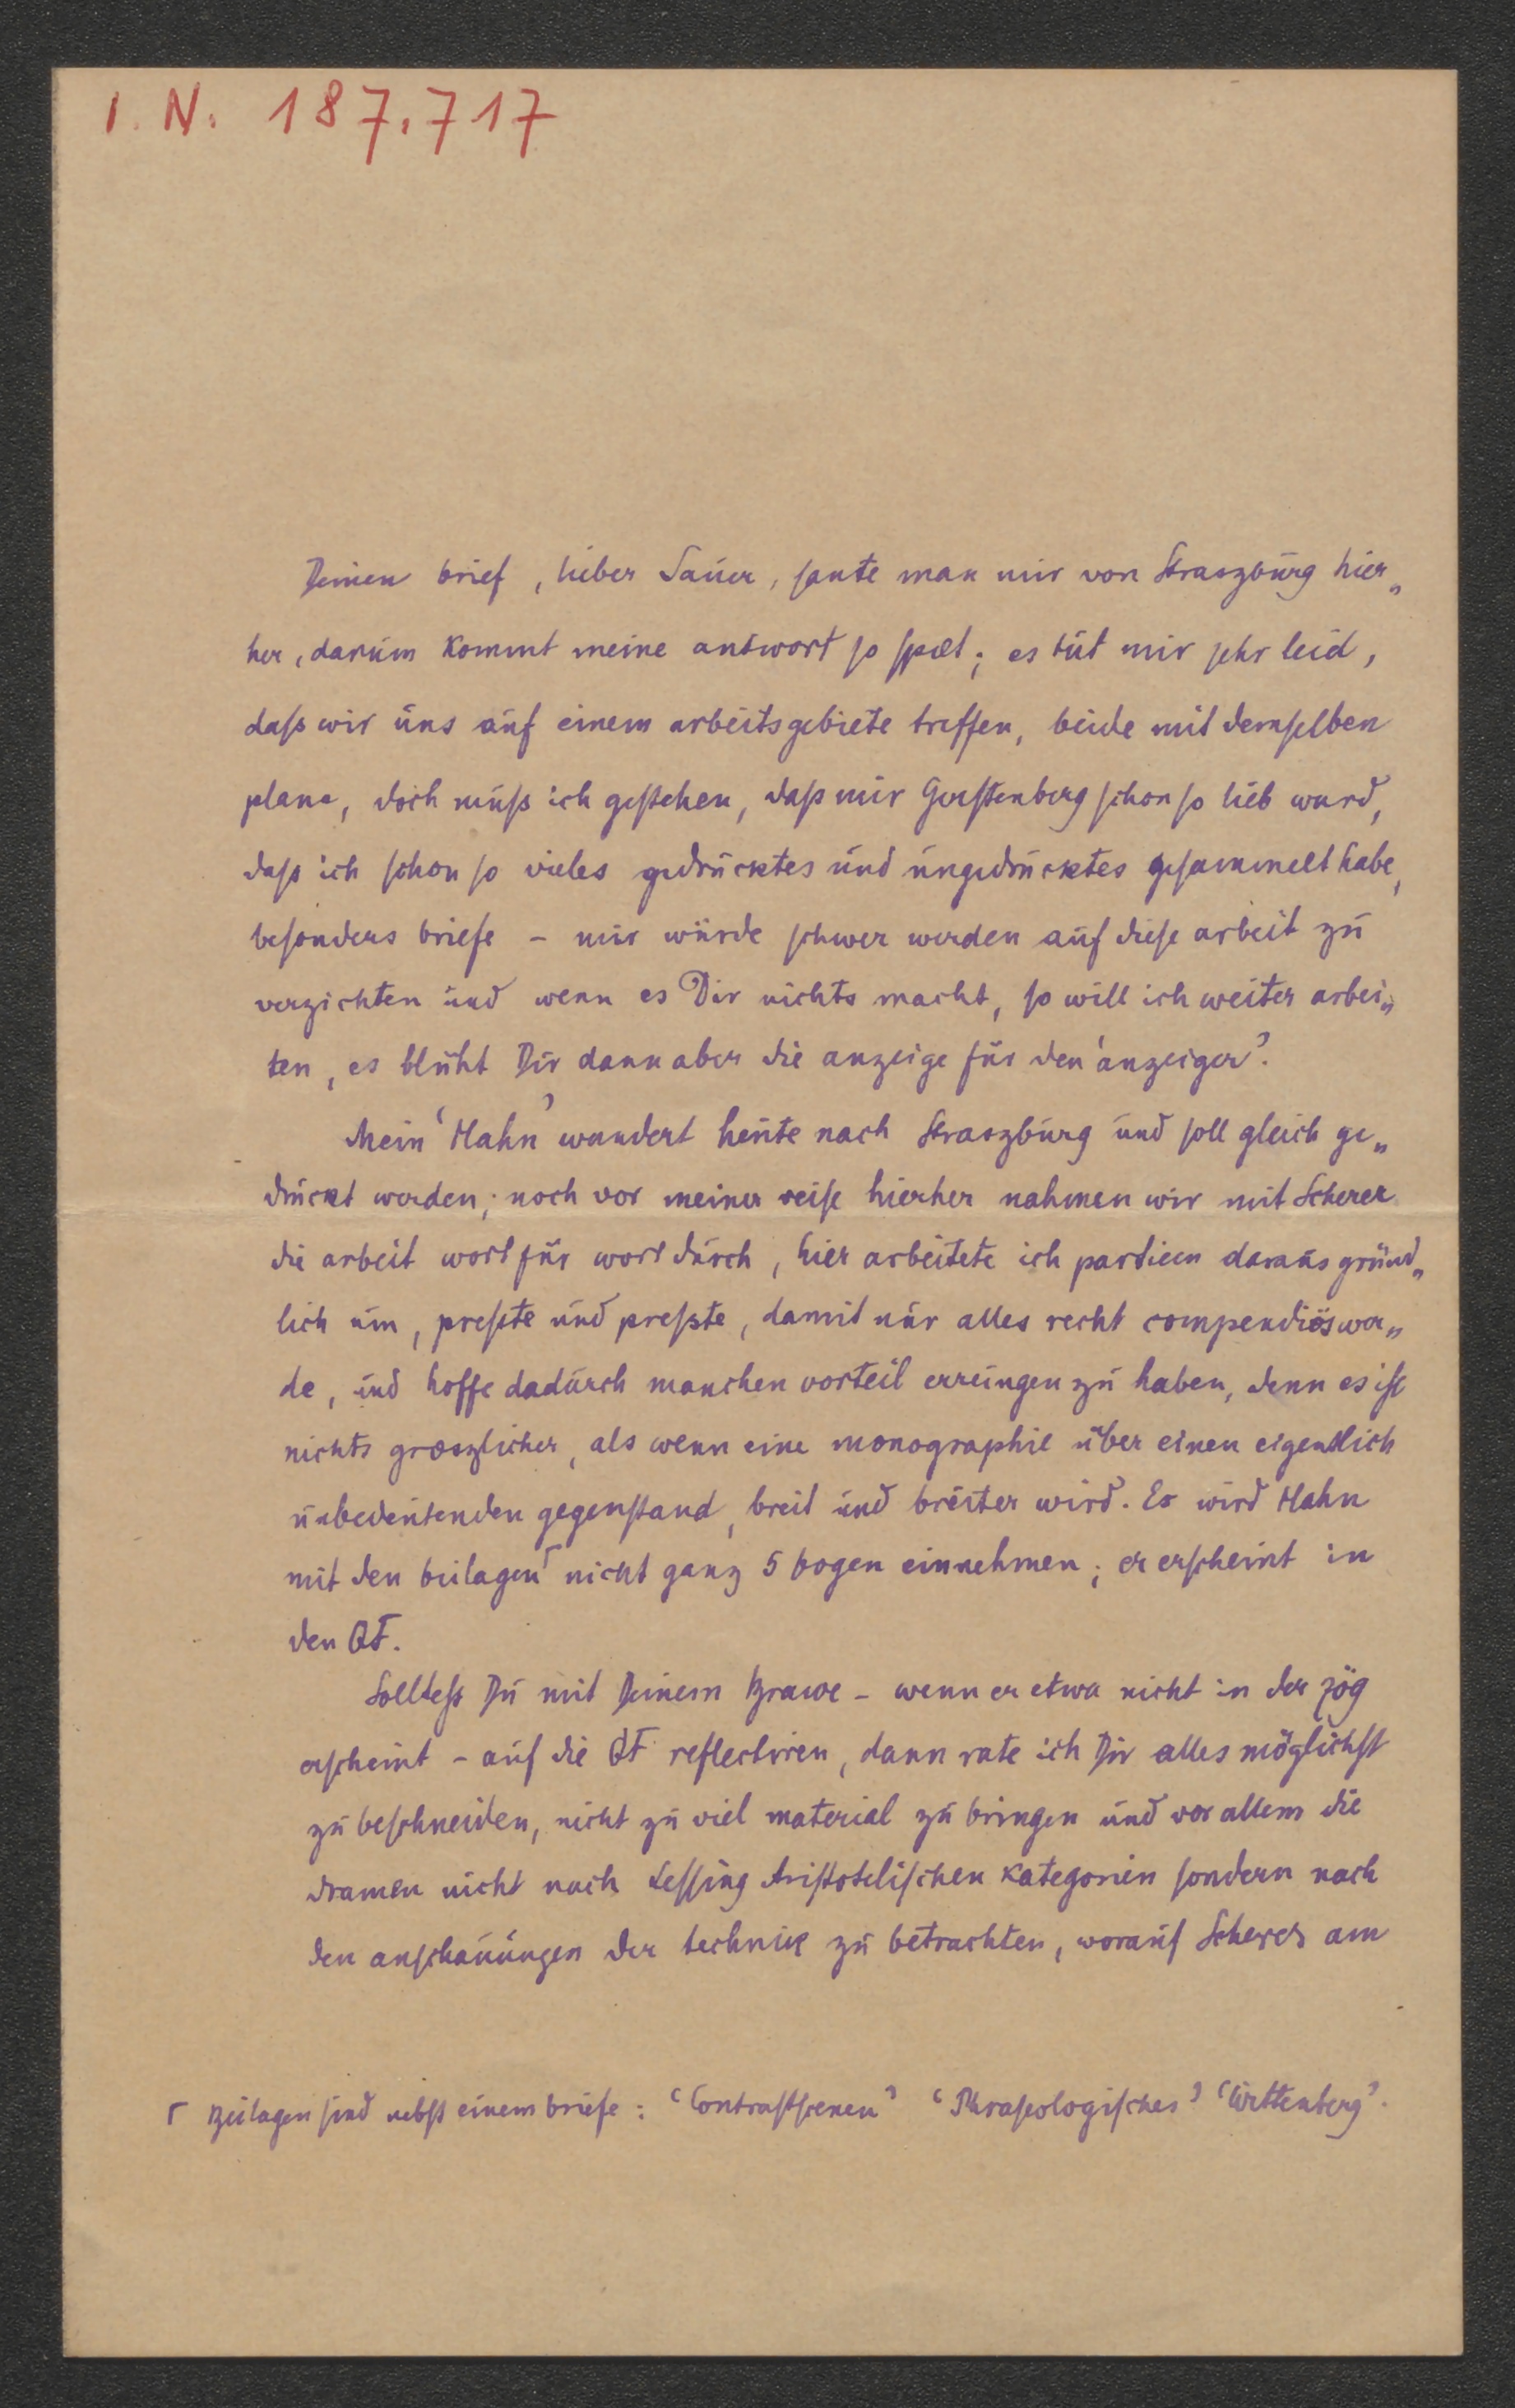 I. N. 187.717
Deinen brief, lieber Sauer, sante man mir von Straszburg hier„
her, darum kommt meine antwort so spæt; es tut mir sehr leid,
dass wir uns auf einem arbeitsgebiete treffen, beide mit demselben
plane, doch muss ich gestehen, dass mir Gerstenberg schon so lieb ward,
dass ich schon so vieles gedrucktes und ungedrucktes gesammelt habe,
besonders briefe – mir würde schwer werden auf diese arbeit zu
verzichten und wenn es Dir nichts macht, so will ich weiter arbei„
ten, es blüht Dir dann aber die anzeige für den ‘anzeiger’.
Mein ‘Hahn’ wandert heute nach Straszburg und soll gleich ge„
druckt werden; noch vor meiner reise hierher nahmen wir mit Scherer
die arbeit wort für wort durch, hier arbeitete ich partieen daraus gründ„
lich um, presste und presste, damit nur alles recht compendiös wer„
de, und hoffe dadurch manchen vorteil errungen zu haben, denn es ist
nichts græszlicher, als wenn eine monographie über einen eigentlich
unbedeutenden gegenstand, breit und breiter wird. Es wird Hahn
mit den beilagen⌈ nicht ganz 5 bogen einnehmen; er erscheint in
den QF.
Solltest Du mit Deinem Brawe – wenn er etwa nicht in der zög
erscheint – auf die QF reflectiren, dann rate ich Dir alles möglichst
zu beschneiden, nicht zu viel material zu bringen und vor allem die
dramen nicht nach Lessing Aristotelischen kategorien sondern nach
den anschauungen der technik zu betrachten, worauf Scherer am
⌈ Beilagen sind nebst einem briefe: ‘Contrastscenen’ ‘Phraseologisches’ ‘Wittenberg’.